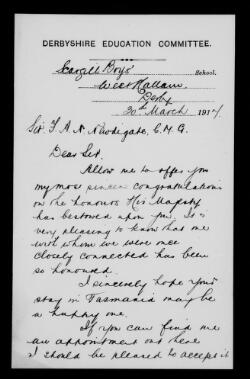 DERBYSHIRE EDUCATION COMMITTEE.
Scargill Boys' School,
West Hallam,
Derby
30th March 1917.
Sir F. A. N. Newdigate, C.M.G.
Dear Sir,
Allow me to offer you
my most sincere congratulations
on the honours His Majesty
has bestowed upon you. It is
very pleasing to know that one
with whom we were once
closely connected has been
so honoured.
I sincerely hope your
stay in Tasmania may be
a happy one.
If you can find me
an appointment out here
I should be pleased to accept it